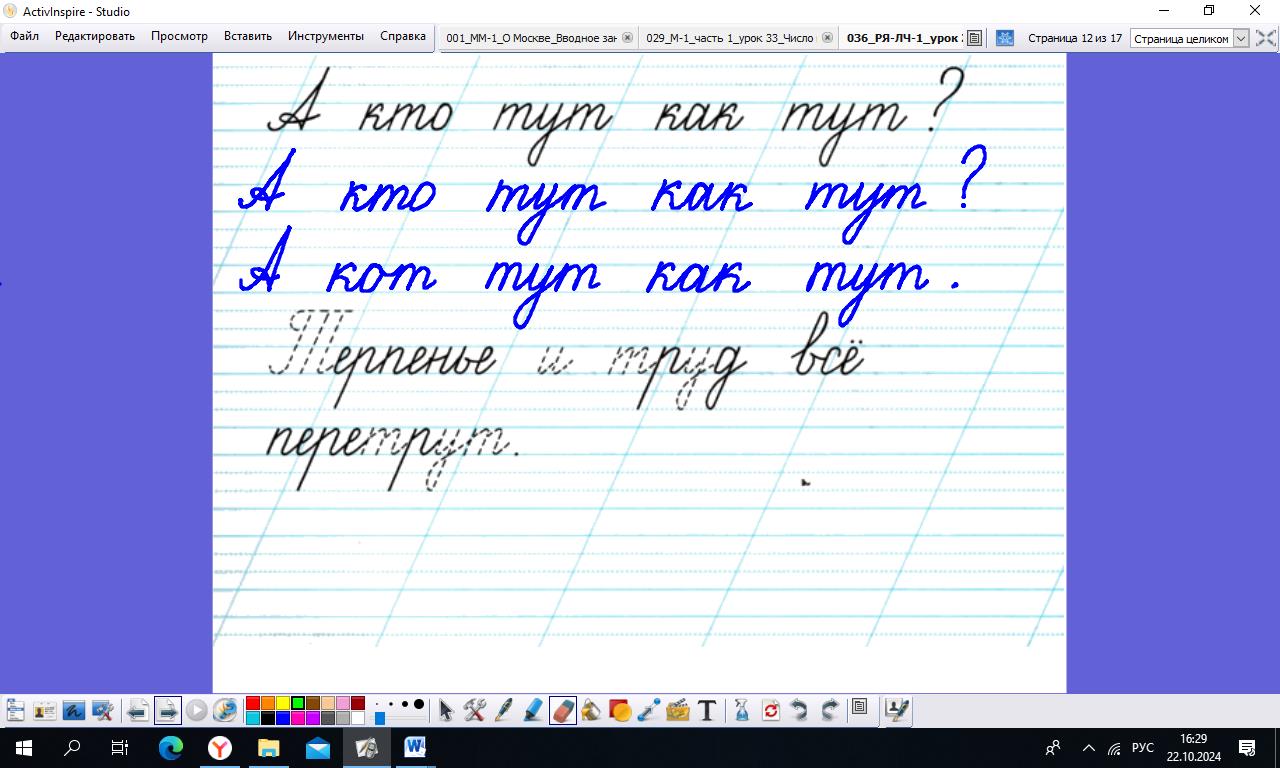 ActivInspire - Studio
Файл Редактировать Просмотр Вставить Инструменты Справка
001_ММ-1_О Москве_Вводное зан 029_М-1_часть 1_урок 33_Число 036_РЯ-ЛЧ-1_урок Страница 12 из 17 Страница целиком
А кто тут как тут?
А кто тут как тут?
А кот тут как тут.
Терпенье и труд всё
перетрут.
РУС
16:29
22.10.2024